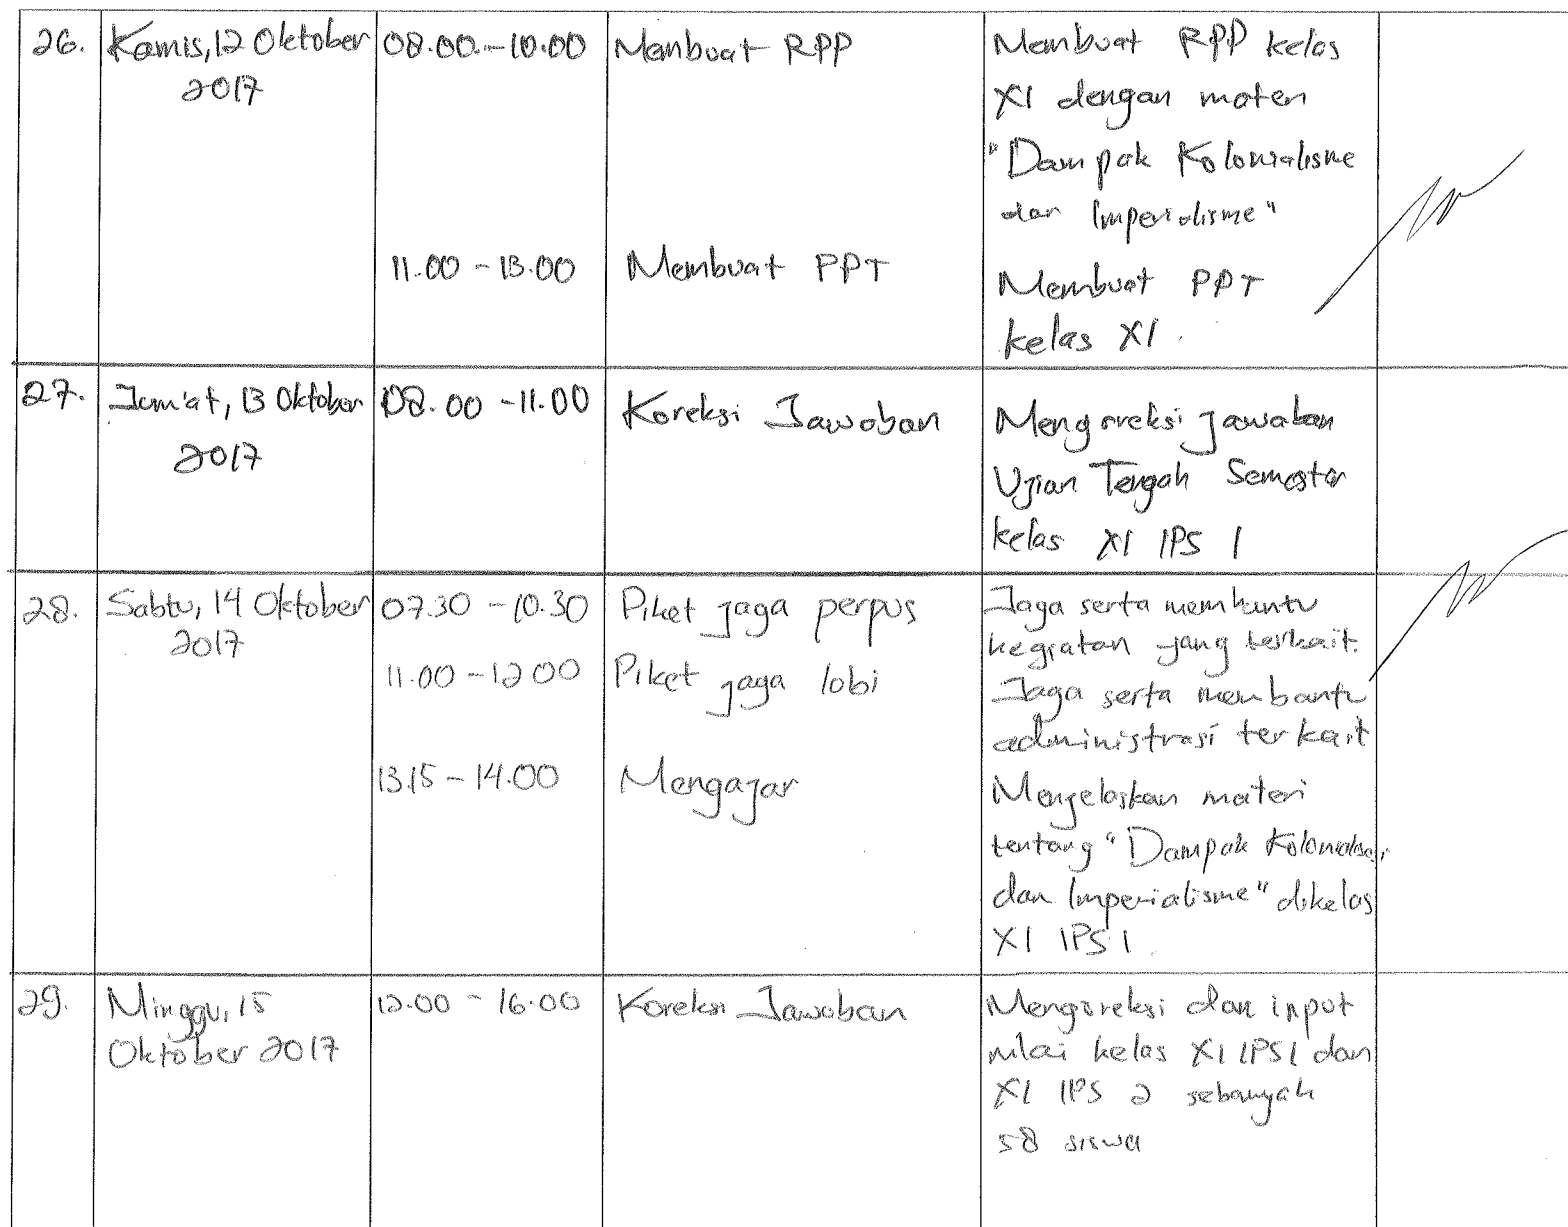 26.
Kamis, 12 Oktober
2017
08.00 - 10.00
Membuat RPP
Membuat RPP kelas
XI dengan materi
"Dampak Kolonialisme
dan Imperialisme"
11.00 - 13.00
Membuat PPT
Membuat PPT
kelas XI.
27.
Jum'at, 13 Oktober
2017
08.00 - 11.00
Koreksi Jawaban
Mengoreksi jawaban
Ujian Tengah Semester
kelas XI IPS 1
28.
Sabtu, 14 Oktober
2017
07.30 - 10.30
Piket jaga perpus
Jaga serta membantu
kegiatan yang terkait.
11.00 - 12.00
Piket jaga lobi
Jaga serta membantu
administrasi terkait
13.15 - 14.00
Mengajar
Menjelaskan materi
tentang "Dampak
dan Imperialisme" dikelas
XI IPS 1.
29.
Minggu, 15
Oktober 2017
12.00 - 16.00
Koreksi Jawaban
Mengoreksi dan input
nilai kelas XI IPS 1 dan
XI IPS 2 sebanyak
58 siswa